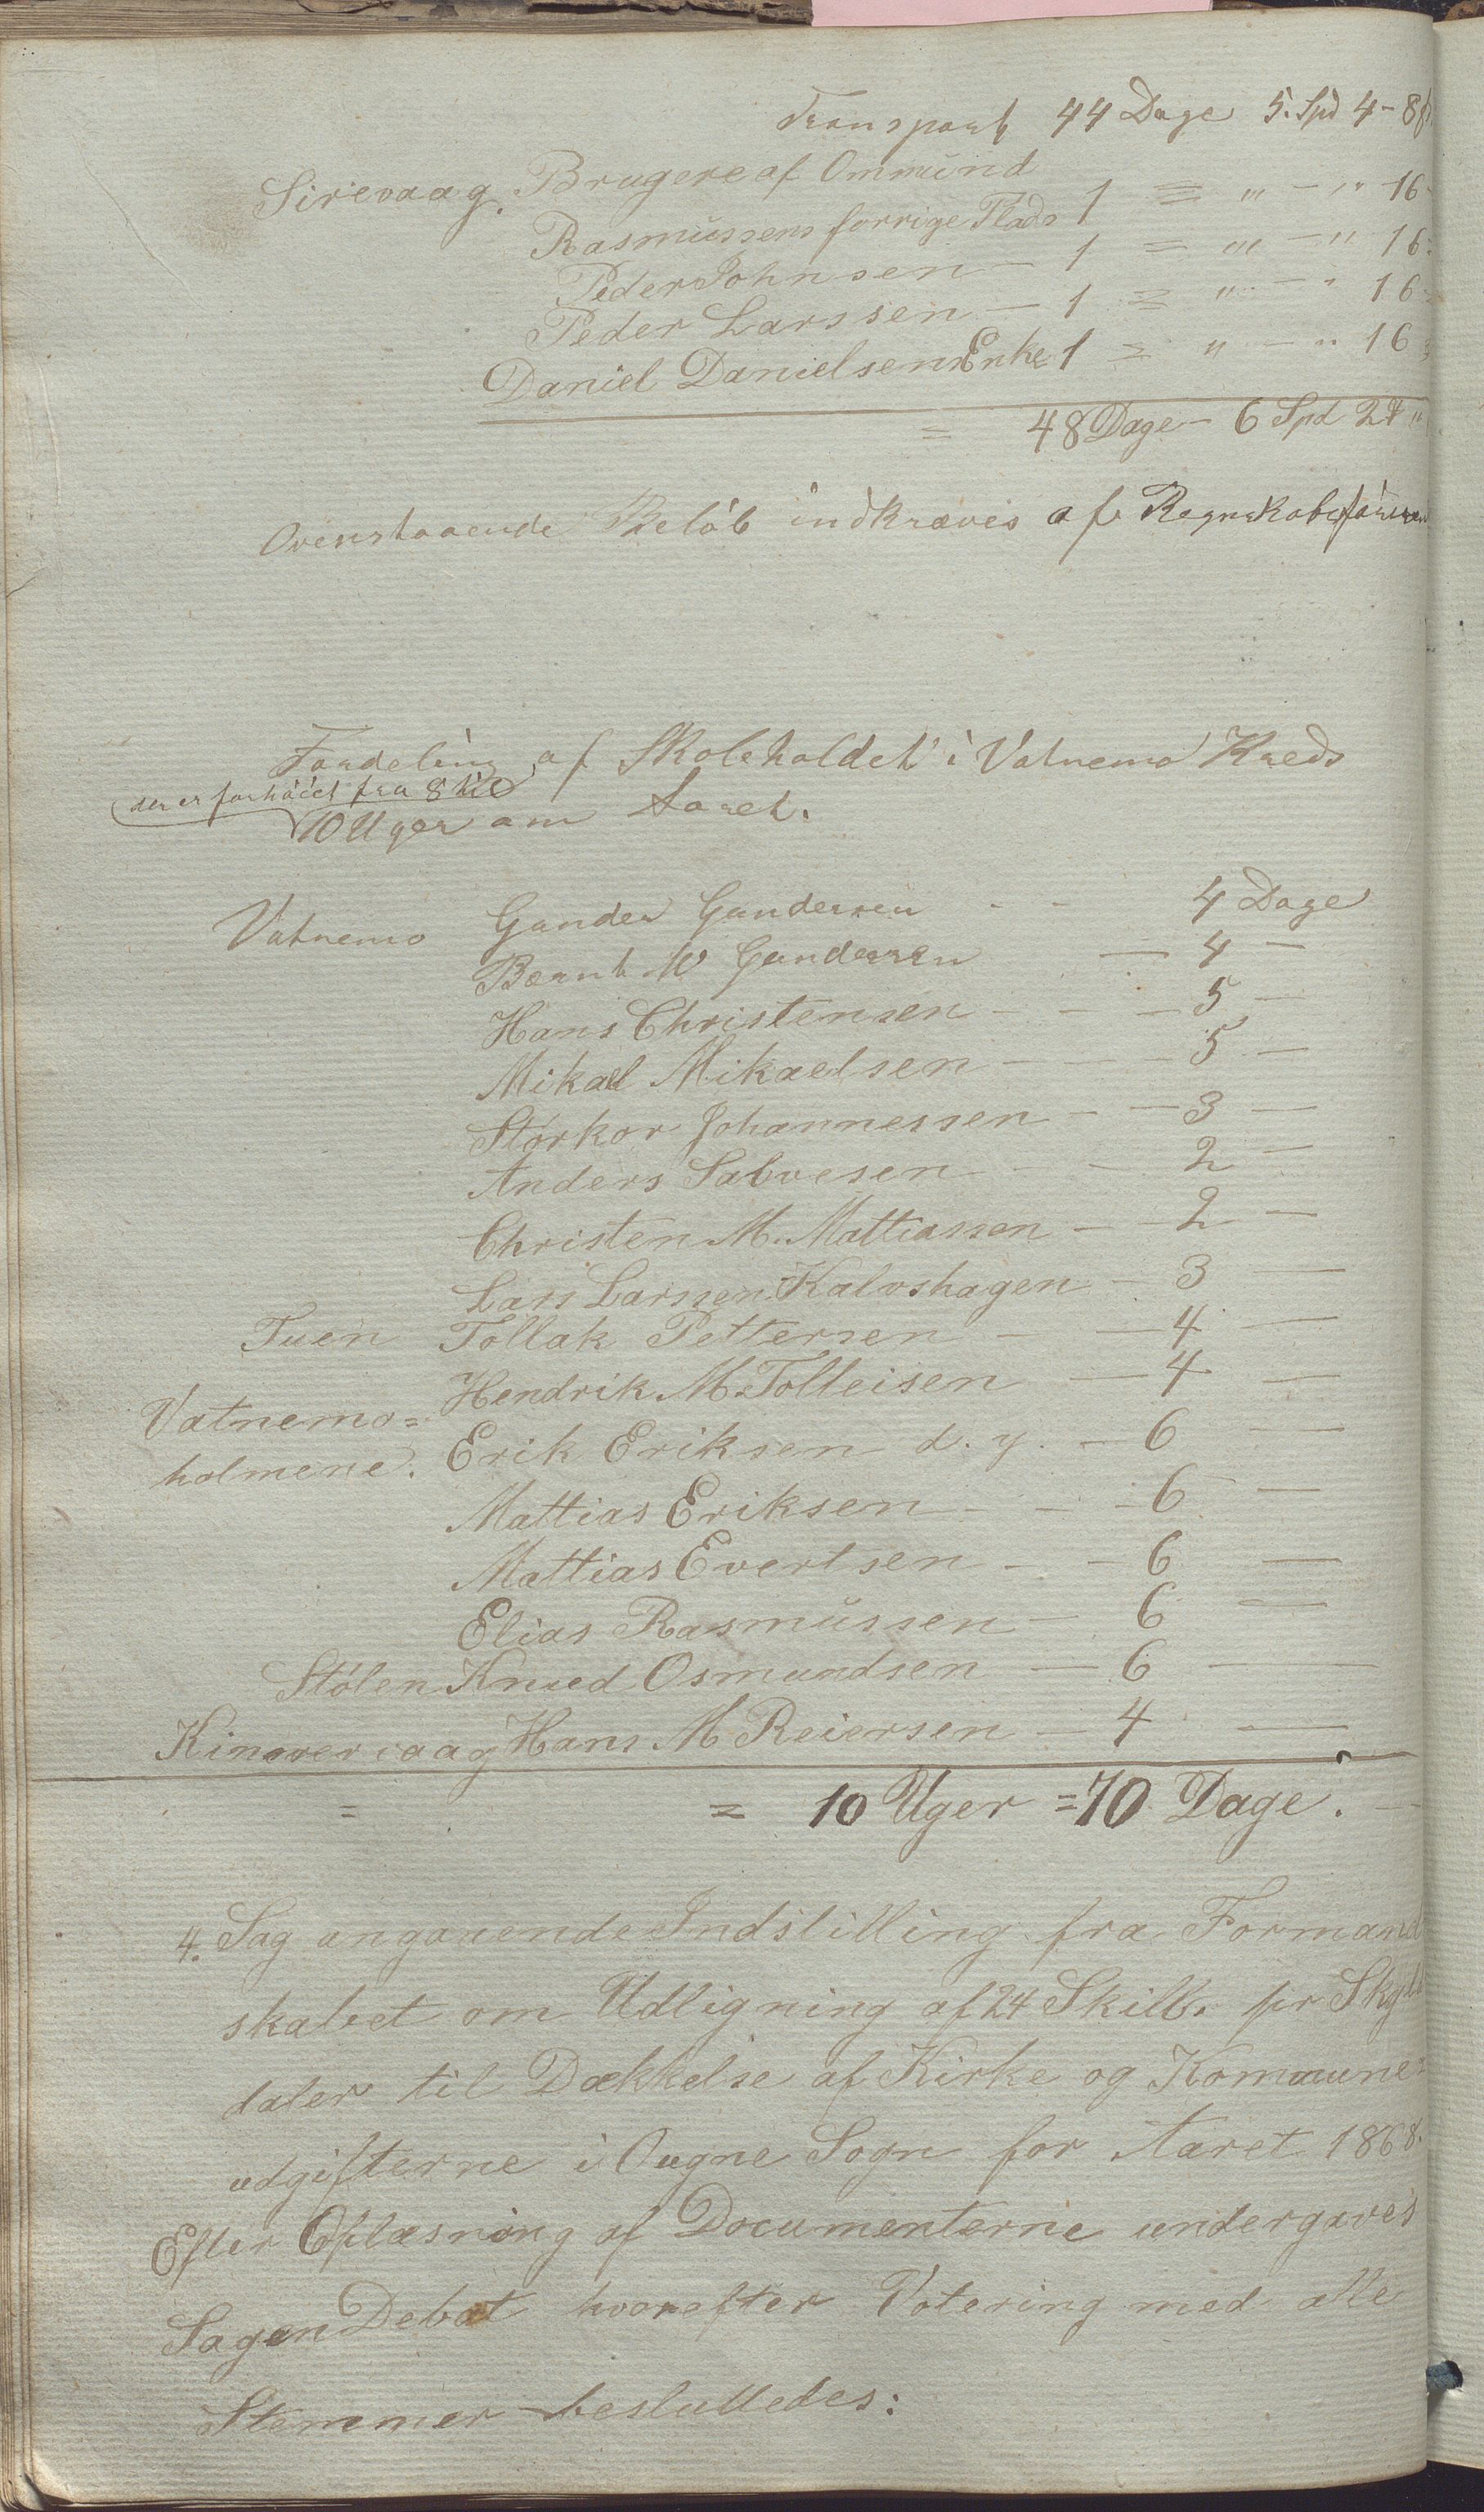 Transport 44 Dage 5. Spd 4 - 8 ß
Sirevaag. Brugere af Ommund
Rasmussens forrige Plads 1 = " - " 16
Peder Johnsen - 1 = " - " 16
Peder Larssen - 1 = " - " 16
Daniel Danielsens Enke 1 = " - " 16
= 48 Dage - 6 Spd 2 "
Ovenstaaende Beløb indkræves af Regnskabsføreren
Fordeling af Skoleholdet i Vatnemo Kreds
der er forhøiet fra 8 til
10 Uger om Aaret.
Vatnemo Gunder Gundersen - - 4 Dage
Bernt W Gundersen - 4 -
Hans Christensen - - - 5 -
Mikal Mikaelsen - - - 5 -
Storkor Johannessen - - 3 -
Anders Salvesen - - - 2 -
Christen M. Mattiassen - - 2 -
Lars Larssen Kalvshagen - 3 -
Tuen Tollak Pettersen - - 4 -
Hendrik M. Tolleisen - 4 -
Vatnemo=
holmene. Erik Eriksen d. y. - 6 -
Mattias Eriksen - - - 6 -
Mattias Evertsen - - 6 -
Elias Rasmussen - 6 -
Stølen Knud Osmundsen - 6 -
Hans M Reiersen - 4 -
= = 10 Uger = 70 Dage. -
4. Sag angaaende Indstilling fra Formand
skabet om Udligning af 24 Skill. pr Skyld
daler til Dækkelse af Kirke og Kommune=
udgifterne i Ougne Sogn for Aaret 1868.
Efter Oplæsning af Documenterne undergaves
Sagen Debat hvorefter Votering med alle
Stemmer besluttedes: